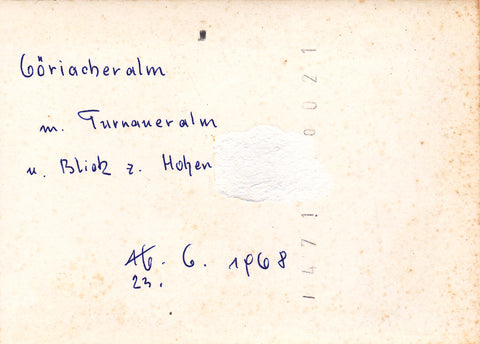 Göriacheralm
m. Turnaueralm
u. Blick z. Hohen
16. 6. 1968
23.
1471 0021